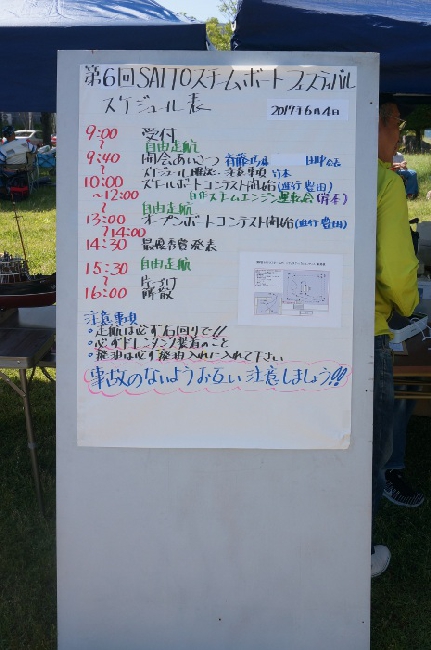 第6回 SAITOスチームボートフェスティバル
スケジュール表
2017年6月4日
9:00 受付
〜 自由走航
9:40 開会あいさつ
〜 スケジュール確認、注意事項
10:00 スチールボートコンテスト開始(進行 豊田)
〜12:00 自作スチームエンジン運転会
〜 自由走航
13:00 オープンボートコンテスト開始(進行 豊田)
〜14:00
14:30 最優秀賞発表
15:30 自由走航
〜 片づけ
16:00 解散
注意事項
・走航は必ず右回りで!!
・必ずドレンタンク装着のこと
・廃油は必ず廃油入れに入れて下さい
事故のないようお互い注意しましょう!!